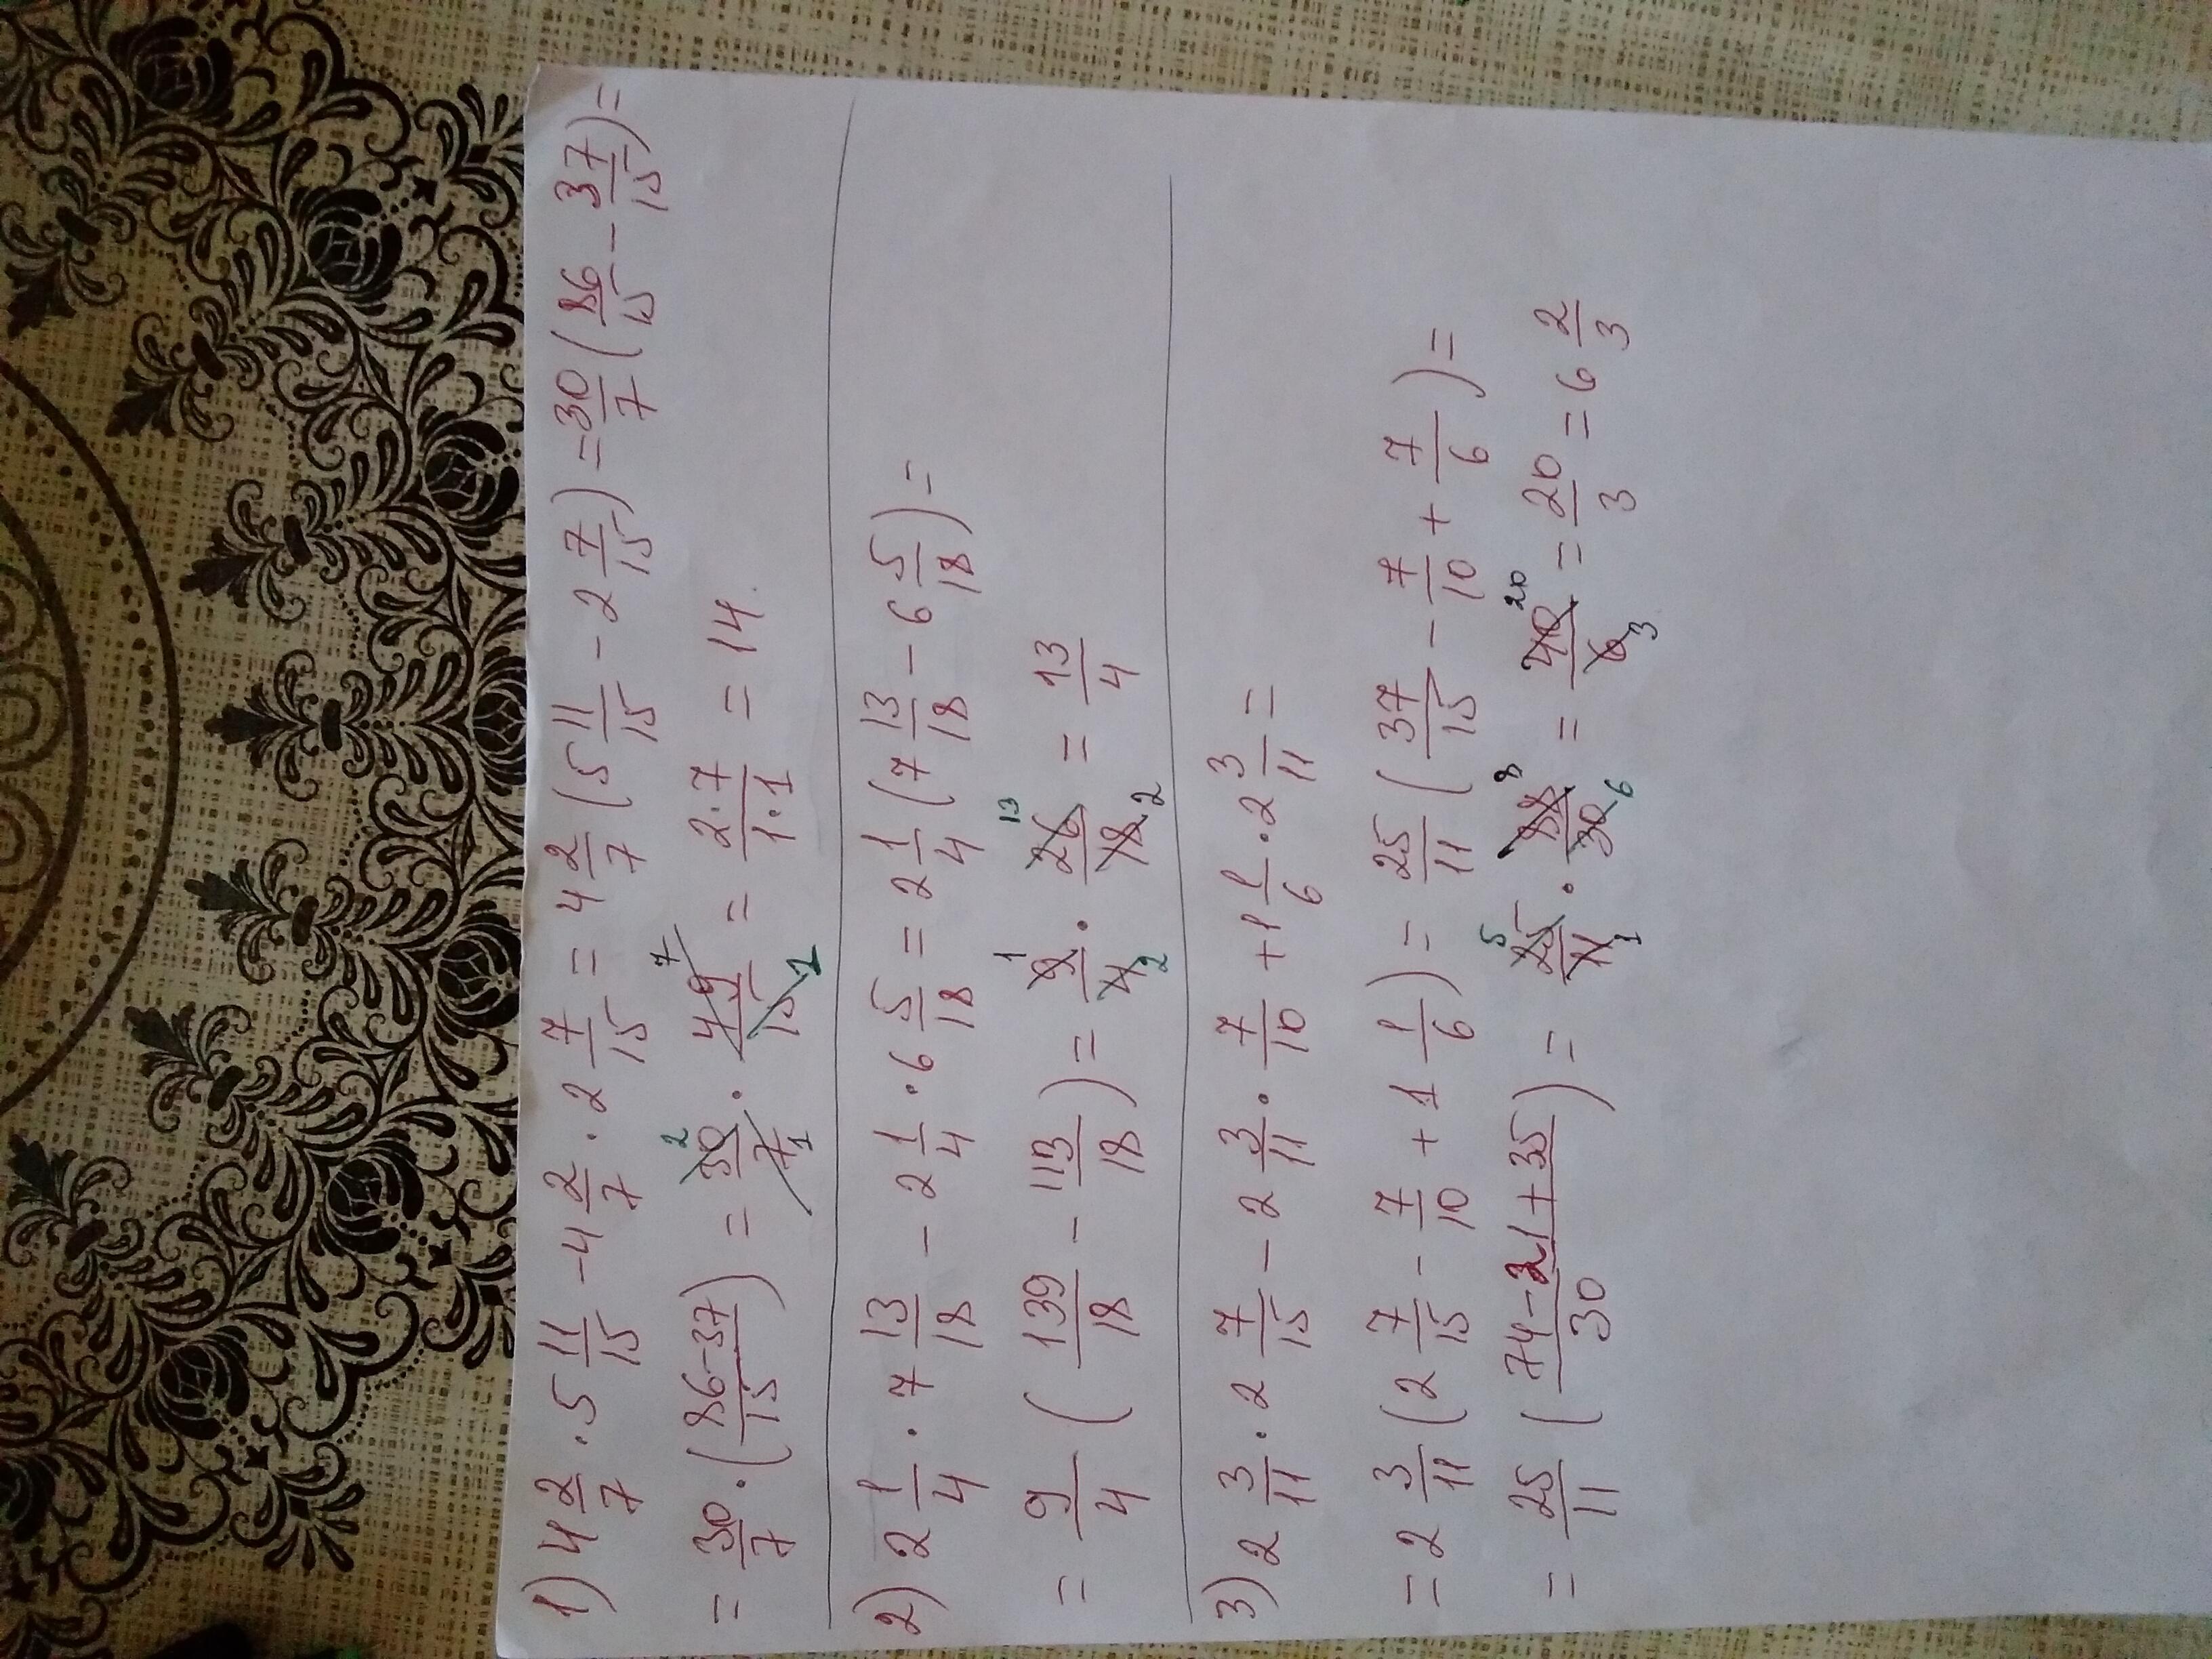 1) 4 2/7 · 5 11/15 - 4 2/7 · 2 7/15 = 4 2/7 (5 11/15 - 2 7/15) = 30/7 (86/15 - 37/15) =
= 30/7 · (86-37/15) = 30/7 2 1 · 49/15 7 1 = 2·7/1·1 = 14.
2) 2 1/4 · 7 13/18 - 2 1/4 · 6 5/18 = 2 1/4 (7 13/18 - 6 5/18) =
= 9/4 (139/18 - 113/18) = 9/4 1 2 · 26/18 13 2 = 13/4
3) 2 3/11 · 2 7/15 - 2 3/11 · 7/10 + 1 1/6 · 2 3/11 =
= 2 3/11 (2 7/15 - 7/10 + 1 1/6) = 25/11 (37/15 - 7/10 + 7/6) =
= 25/11 (74-21+35/30) = 25/11 5 1 · 88/30 8 6 = 40/6 20 3 = 20/3 = 6 2/3